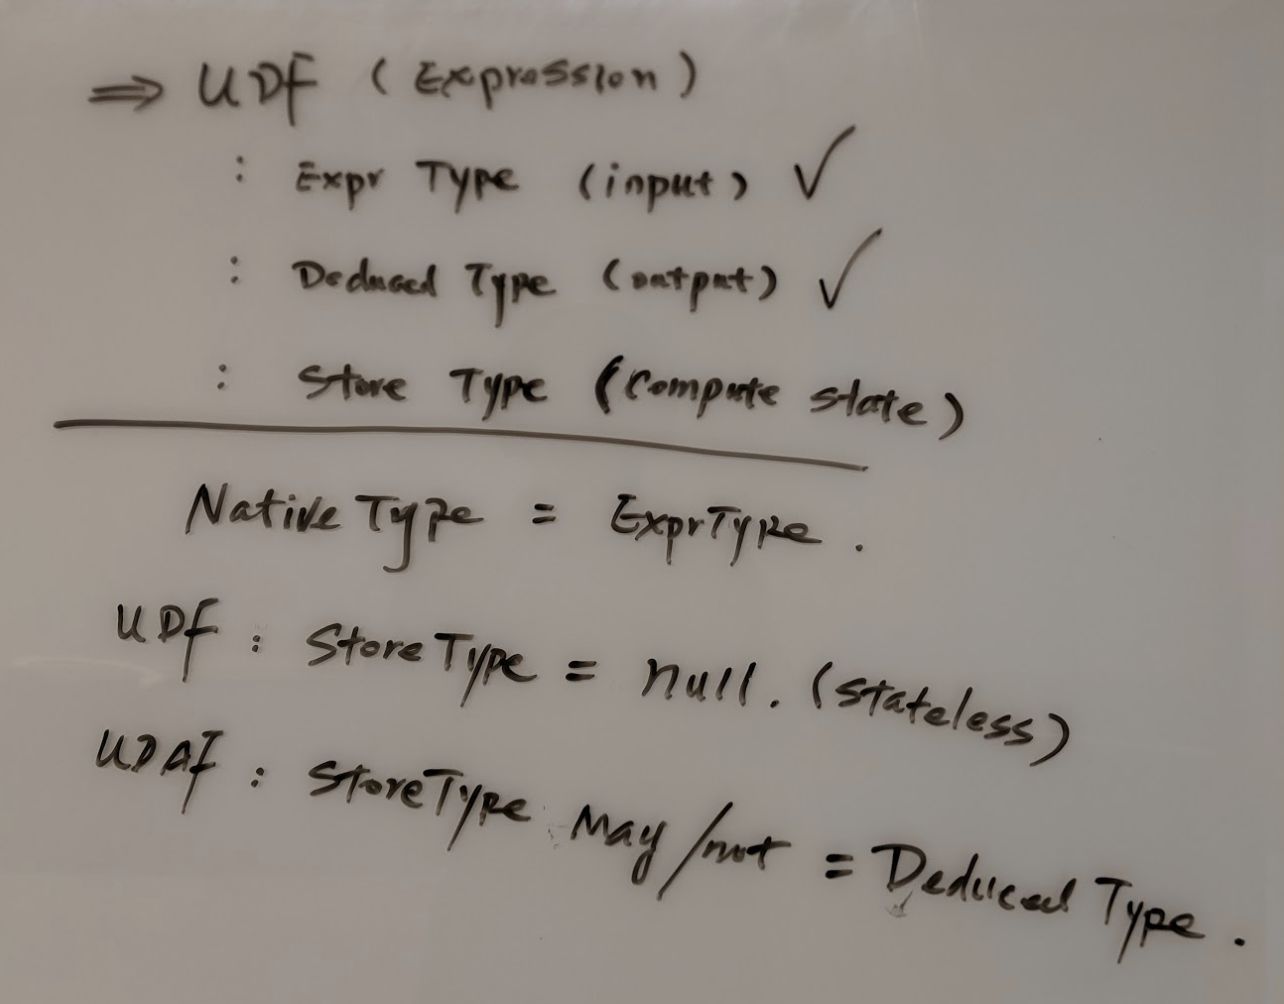 ⇒ UDF (Expression)
: Expr Type (input) ✓
: Deduced Type (output) ✓
: Store Type (Compute state)
Native Type = ExprType.
UDF : StoreType = null. (stateless)
UDAF : StoreType may/not = Deduced Type.